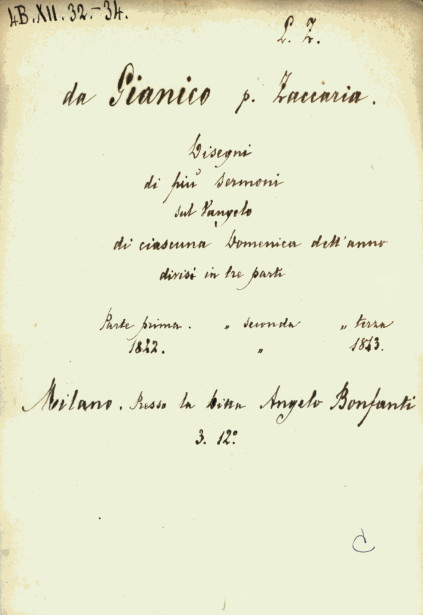 4B.XII.32.-34.
L. Z.
da Gianico p. Zaccaria.
Disegni
di più sermoni
sul Vangelo
di ciascuna Domenica dell'anno
divisi in tre parti
Parte prima. „ seconda „ terza
1842. „ 1843.
Milano. Presso la Ditta Angelo Bonfanti
3. 12°